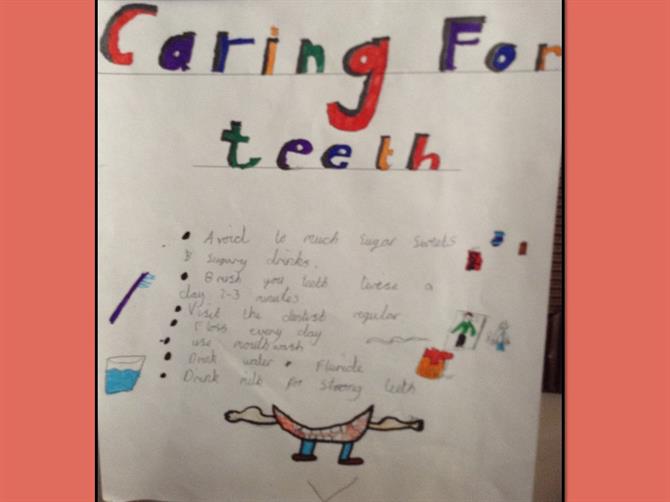 Caring For
teeth
Avoid to much sugar sweets
& sugary drinks.
Brush you teeth twese a
day 2-3 minutes
Visit the dentist regular
Floss every day
use mouthwash
Drink water + Floride
Drink milk for strong teeth